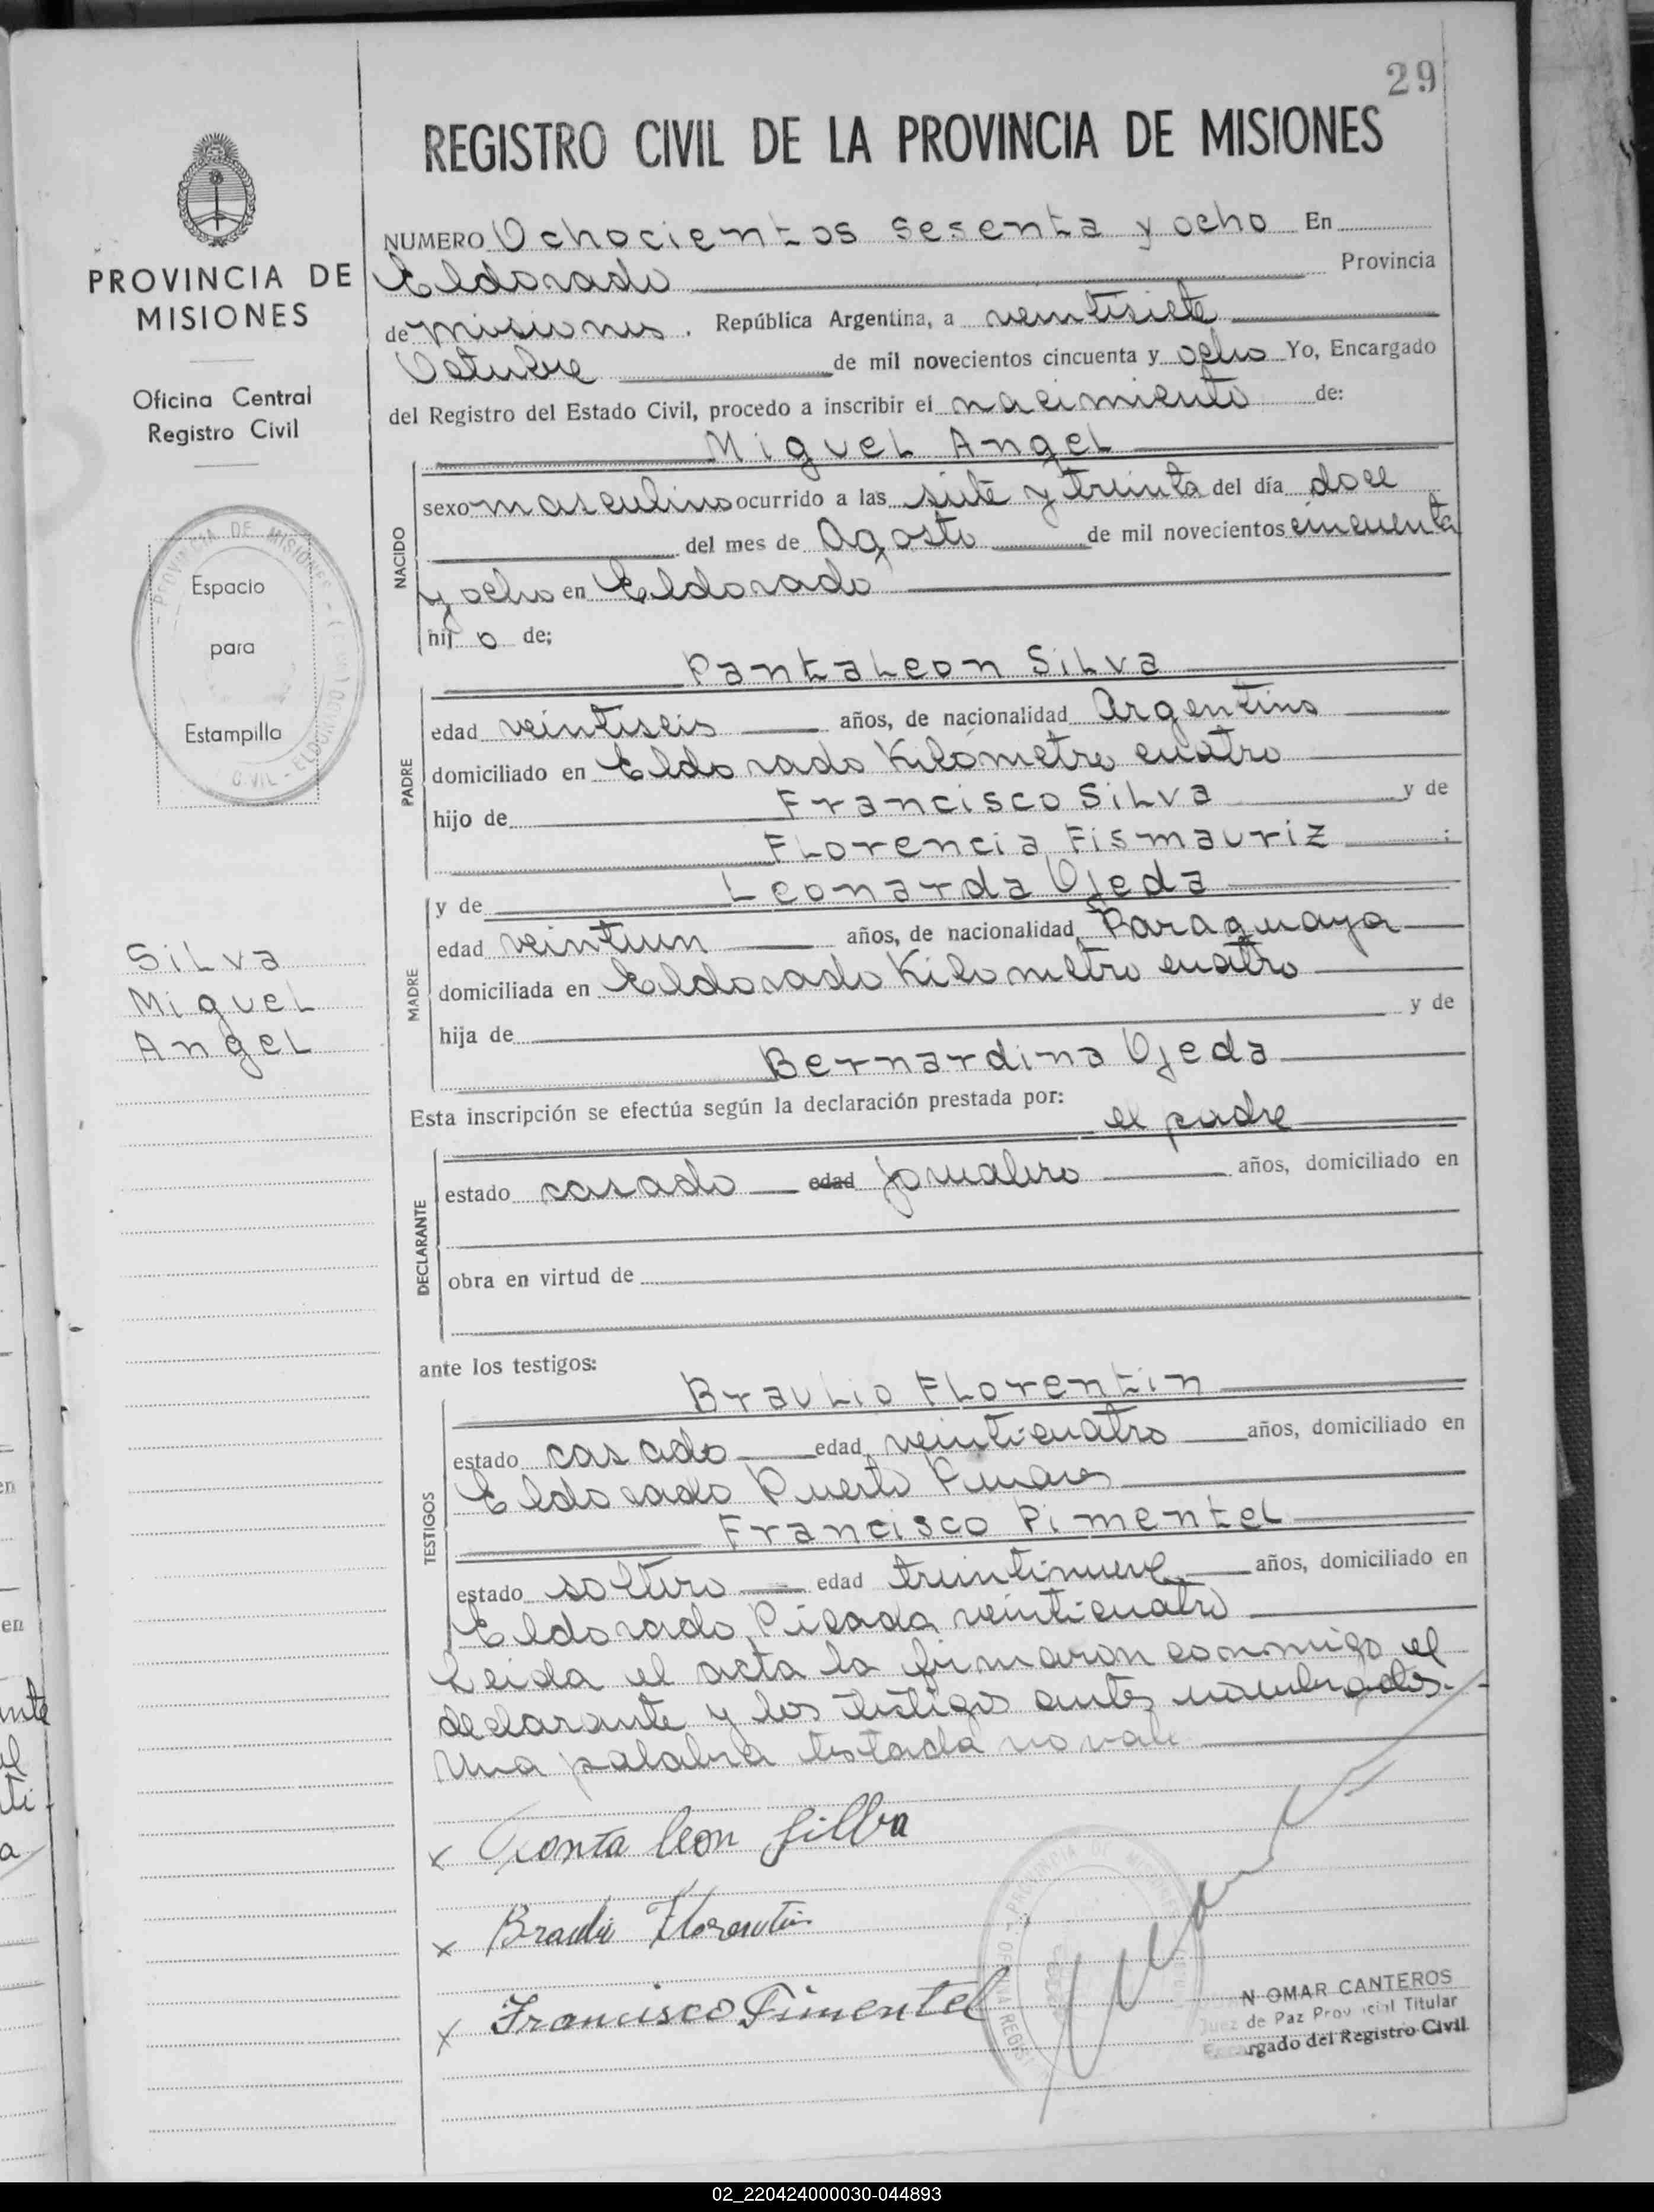 29
REGISTRO CIVIL DE LA PROVINCIA DE MISIONES
PROVINCIA DE
MISIONES
Oficina Central
Registro Civil
PROVINCIA DE MISIONES
CIVIL - ELDORADO
Espacio
para
Estampilla
Silva
Miguel
Angel
NUMERO Ochocientos sesenta y ocho En
Eldorado Provincia
de Misiones . República Argentina, a veintisiete
Octubre de mil novecientos cincuenta y ocho Yo, Encargado
del Registro del Estado Civil, procedo a inscribir el nacimiento de:
Miguel Angel
NACIDO
sexo masculino ocurrido a las siete y treinta del día doce
del mes de Agosto de mil novecientos cincuenta
y ocho en Eldorado
hijo de;
Pantaleon Silva
PADRE
edad veintiseis años, de nacionalidad Argentino
domiciliado en Eldorado Kilómetro cuatro
hijo de Francisco Silva y de
Florencia Fismauriz ;
y de Leonarda Ojeda
MADRE
edad veintiun años, de nacionalidad Paraguaya
domiciliada en Eldorado Kilometro cuatro
hija de y de
Bernardina Ojeda
Esta inscripción se efectúa según la declaración prestada por: el padre
DECLARANTE
estado casado edad jornalero años, domiciliado en
obra en virtud de
ante los testigos:
Braulio Florentin
TESTIGOS
estado casado edad veinticuatro años, domiciliado en
Eldorado Puerto Pinares
Francisco Pimentel
estado soltero edad treintinueve años, domiciliado en
Eldorado Picada veinticuatro
Leida el acta la firmaron conmigo el
declarante y los testigos antes nombrados.
Una palabra testada no vale
x Panta leon Silba
x Braulio Florentin
x Francisco Pimentel
PROVINCIA DE MISIONES
N OMAR CANTEROS
Juez de Paz Provincial Titular
Encargado del Registro Civil
02_220424000030-044893